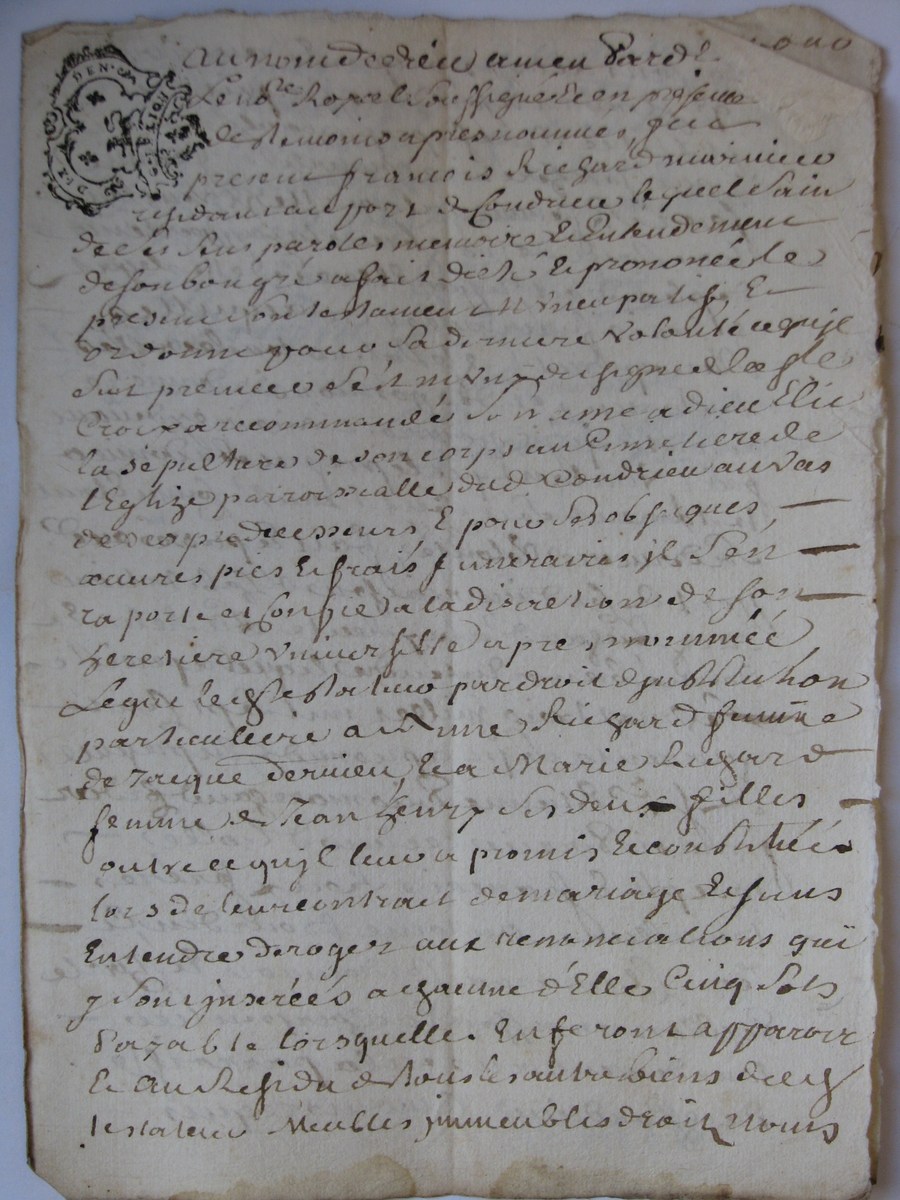 au nom de dieu amen Pard
Le nore Royal Soussigné et en presence
des temoins apres nommés, fut
present francois Richard marinier
residant au port de Condrieu lequel Sain
de ces sens parolles memoire Et Entendement
de son bon gré a fait dicté Et prononcé le
present Son testament Et
ordonne pour Sa derniere volonté ce quil
Suit premier S'est muny du signe de la ste
Croix a recommandé Son ame a dieu Elit
la sepulture de son corps au Cimetiere de
l'Eglize parroissialle dud Condrieu au vas
de ses predecesseurs, E pour Ses obseques,
œuvres pies Et frais funeraires jl S'en
raporte et Confie a la discretion de Son
heretiere universelle apres nommée
Legue led testateur par droit d'institution
particuliere a Anne Richard femme
de Jacque dernieu, Et a Marie Richard
femme de Jean henry Ses deux filles
outre ce qujl leur a promis Et constitué
lors de leur contrait de mariage Et sans
Entendre deroger aux renonciations qui
y Sont jnserées a chacune d'Elle Cinq Sols
Payable lorsquelle En feront apparoir
Et au Residu de tous les autre biens dud
testateur Meubles jmmeubles droit noms